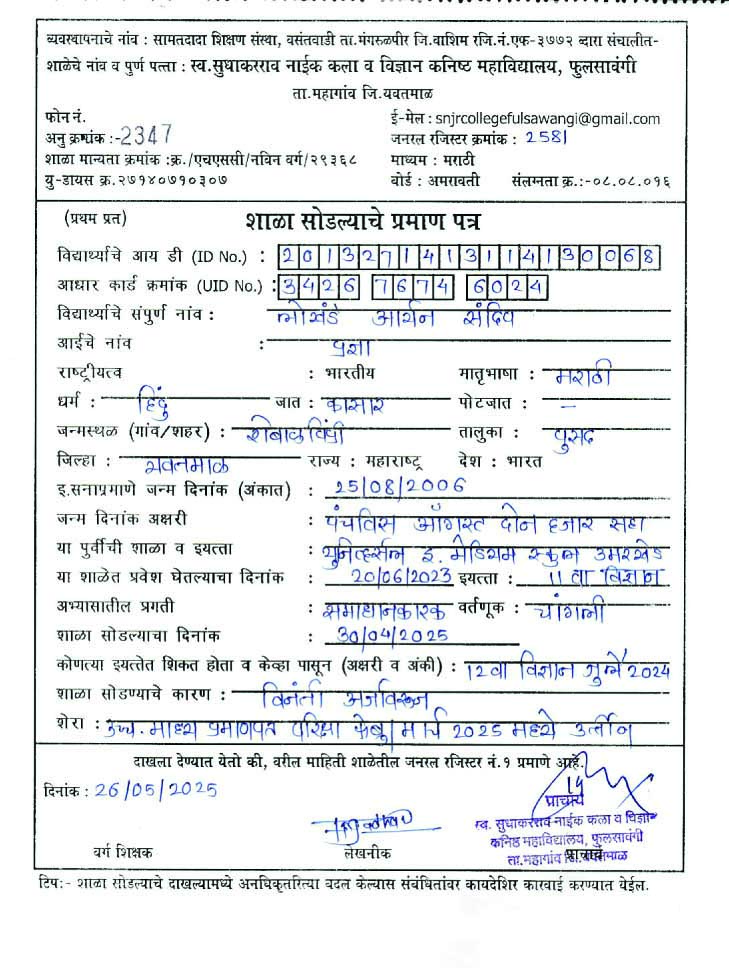 व्यवस्थापनाचे नांव : सामतदादा शिक्षण संस्था, वसंतवाडी ता.मंगरुळपीर जि.वाशिम रजि.नं.एफ-३७७२ व्दारा संचालीत-
शाळेचे नांव व पुर्ण पत्ता : स्व.सुधाकरराव नाईक कला व विज्ञान कनिष्ठ महाविद्यालय, फुलसावंगी
ता.महागांव जि.यवतमाळ
फोन नं. ई-मेल : snjrcollegefulsawangi@gmail.com
अनु क्रमांक :-2347 जनरल रजिस्टर क्रमांक : 2581
शाळा मान्यता क्रमांक :क्र./एचएससी/नविन वर्ग/२९३६८ माध्यम : मराठी
यु-डायस क्र.२७१४०७१०३०७ बोर्ड : अमरावती संलग्नता क्र.:-०८.०८.०१६
(प्रथम प्रत) शाळा सोडल्याचे प्रमाण पत्र
विद्यार्थ्याचे आय डी (ID No.) : 2013271413114130068
आधार कार्ड क्रमांक (UID No.) : 3426 7674 6024
विद्यार्थ्याचे संपुर्ण नांव : लोखंडे आर्यन संदिप
आईचे नांव :
राष्ट्रीयत्व : भारतीय मातृभाषा : मराठी
धर्म : हिंदु जात : कासार पोटजात : -
जन्मस्थळ (गांव/शहर) : तालुका : पुसद
जिल्हा : यवतमाळ राज्य : महाराष्ट्र देश : भारत
इ.सनाप्रमाणे जन्म दिनांक (अंकात) : 25/08/2006
जन्म दिनांक अक्षरी : पंचविस ऑगस्ट दोन हजार सहा
या पुर्वीची शाळा व इयत्ता : युनिव्हर्सल इ. मेडियम स्कुल उमरखेड
या शाळेत प्रवेश घेतल्याचा दिनांक : 20/06/2023 इयत्ता : 11 वा विज्ञान
अभ्यासातील प्रगती : समाधानकारक वर्तणूक : चांगली
शाळा सोडल्याचा दिनांक : 30/04/2025
कोणत्या इयत्तेत शिकत होता व केव्हा पासून (अक्षरी व अंकी) : 12वा विज्ञान जुलै 2024
शाळा सोडण्याचे कारण : विनंती अर्जावरून
शेरा : उच्च. माध्य प्रमाणपत्र परिक्षा फेब्रु/मार्च 2025 मध्ये उर्त्तीण
दाखला देण्यात येतो की, वरील माहिती शाळेतील जनरल रजिस्टर नं.१ प्रमाणे आहे.
दिनांक : 26/05/2025
प्राचार्य
स्व. सुधाकरराव नाईक कला व विज्ञान
कनिष्ठ महाविद्यालय, फुलसावंगी
ता.महागांव जि.यवतमाळ
वर्ग शिक्षक लेखनीक प्राचार्य
टिप:- शाळा सोडल्याचे दाखल्यामध्ये अनधिकृतरित्या बदल केल्यास संबंधितांवर कायदेशिर कारवाई करण्यात येईल.